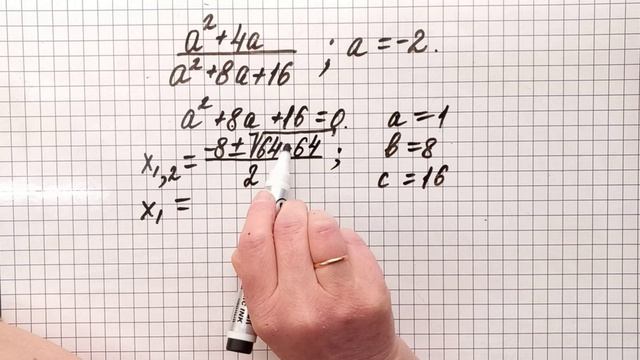 a² + 4a / a² + 8a + 16 ; a = -2.
a² + 8a + 16 = 0. a = 1
x₁,₂ = -8 ± √64-64 / 2 ; b = 8
c = 16
x₁ =
INK